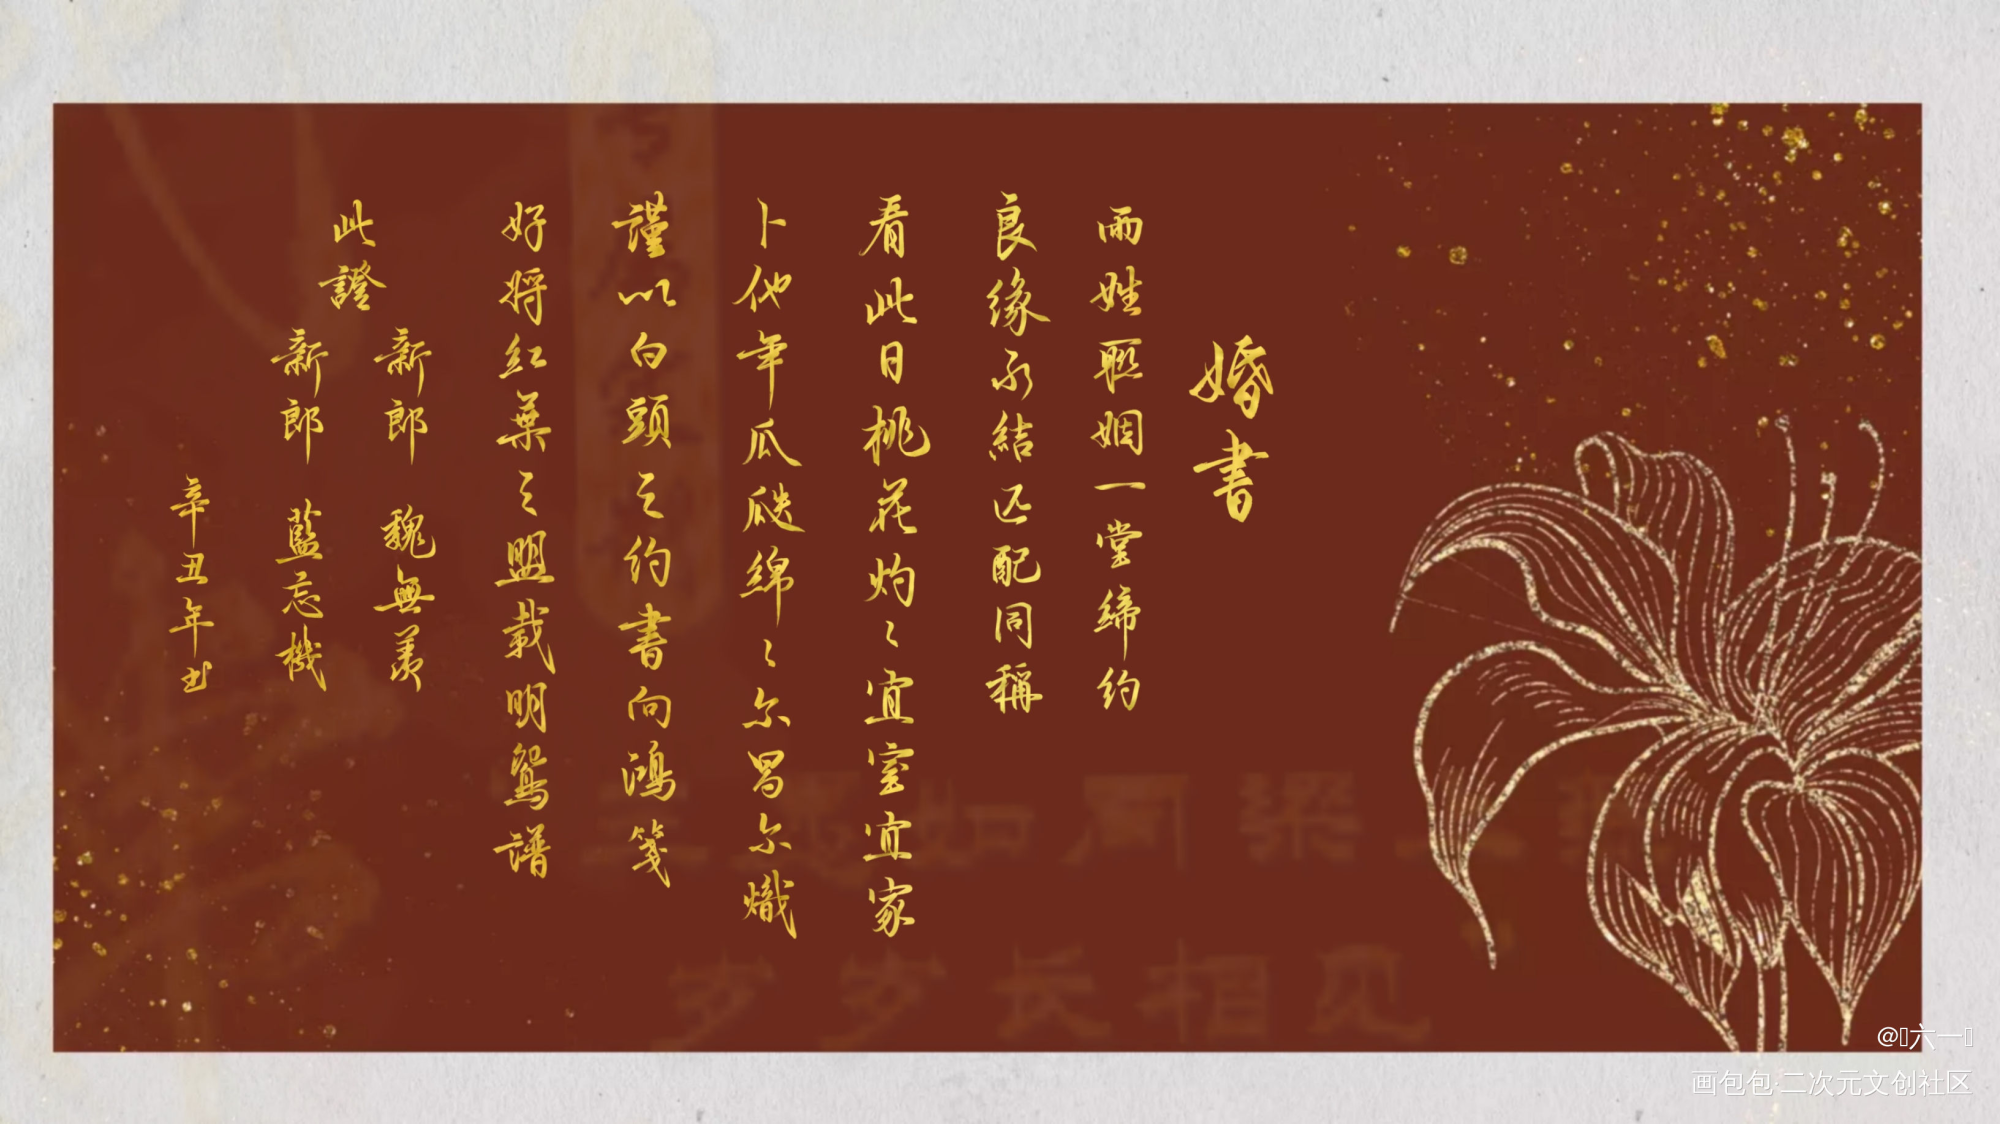 婚書
兩姓聯姻一堂締約
良缘永結匹配同稱
看此日桃花灼灼宜室宜家
卜他年瓜瓞綿綿尔昌尔熾
謹以白頭之约書向鴻箋
好將紅葉之盟载明鴛譜
此證
新郎 魏無羡
新郎 藍忘機
辛丑年书
岁岁长相见
@六一
画包包·二次元文创社区